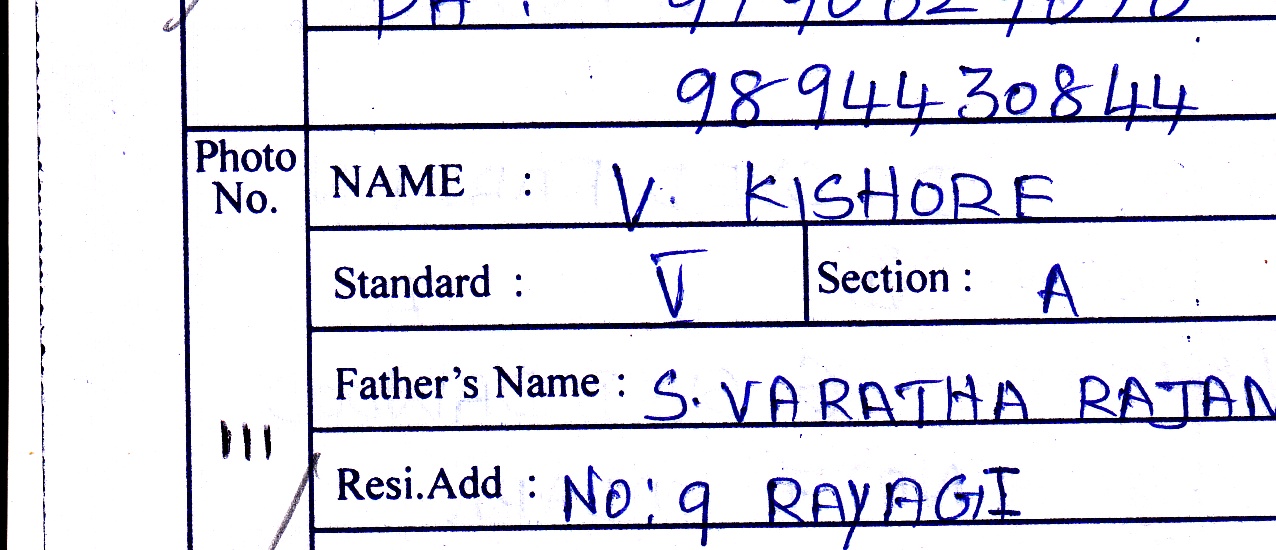 9894430844
Photo No.
NAME : V. KISHORE
Standard : V Section : A
Father's Name : S. VARATHA RAJAN
111
Resi.Add : No: 9 RAYAGI